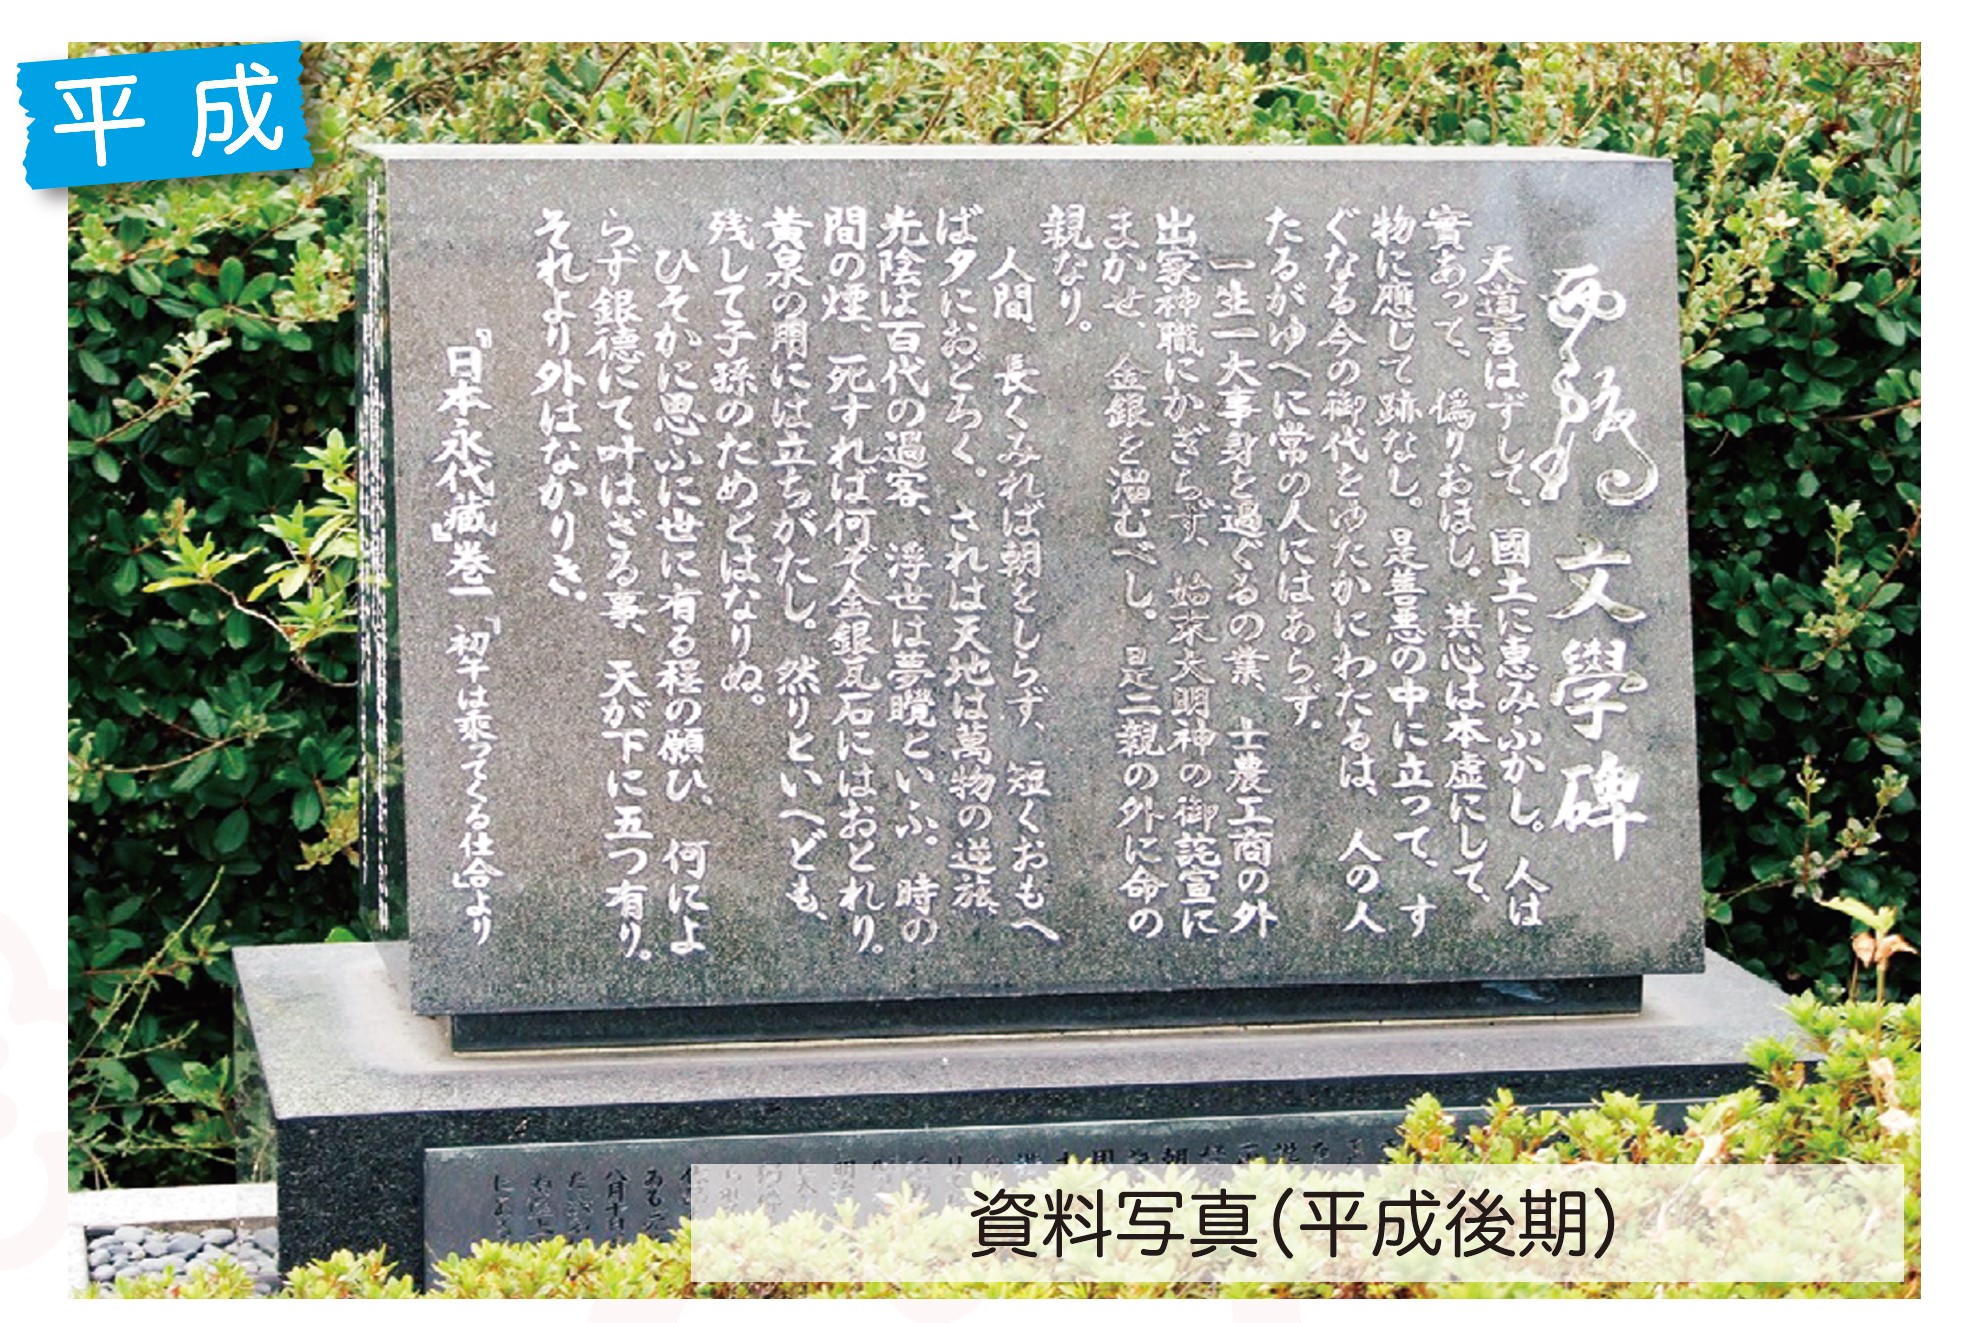 平成
西鶴 文學碑
天道言はずして、國土に恵みふかし。人は
實あって、偽りおほし。其心は本虚にして、
物に應じて跡なし。是善悪の中に立って、す
ぐなる今の御代とゆたかにわたるは、人の人
たるがゆへに常の人にはあらず。
一生一大事身と過ぐるの業、士農工商の外
出家神職にかぎらず、始末大明神の御詫宣に
まかせ、金銀を溜むべし。是二親の外に命の
親なり。
人間、長くみれば朝をしらず、短くおもへ
ば夕におどろく。されは天地は萬物の逆旅、
光陰は百代の過客、浮世は夢といふ。時の
間の煙、死すれば何ぞ金銀瓦石にはおとれり。
黄泉の用には立ちがたし。然りといへども、
残して子孫のためとはなりぬ。
ひそかに思ふに世に有る程の願ひ、何によ
らず銀徳にて叶はざる事、天が下に五つ有り。
それより外はなかりき。
『日本永代蔵』巻一「初午は乘ってくる仕合」より
八月十日
資料写真(平成後期)